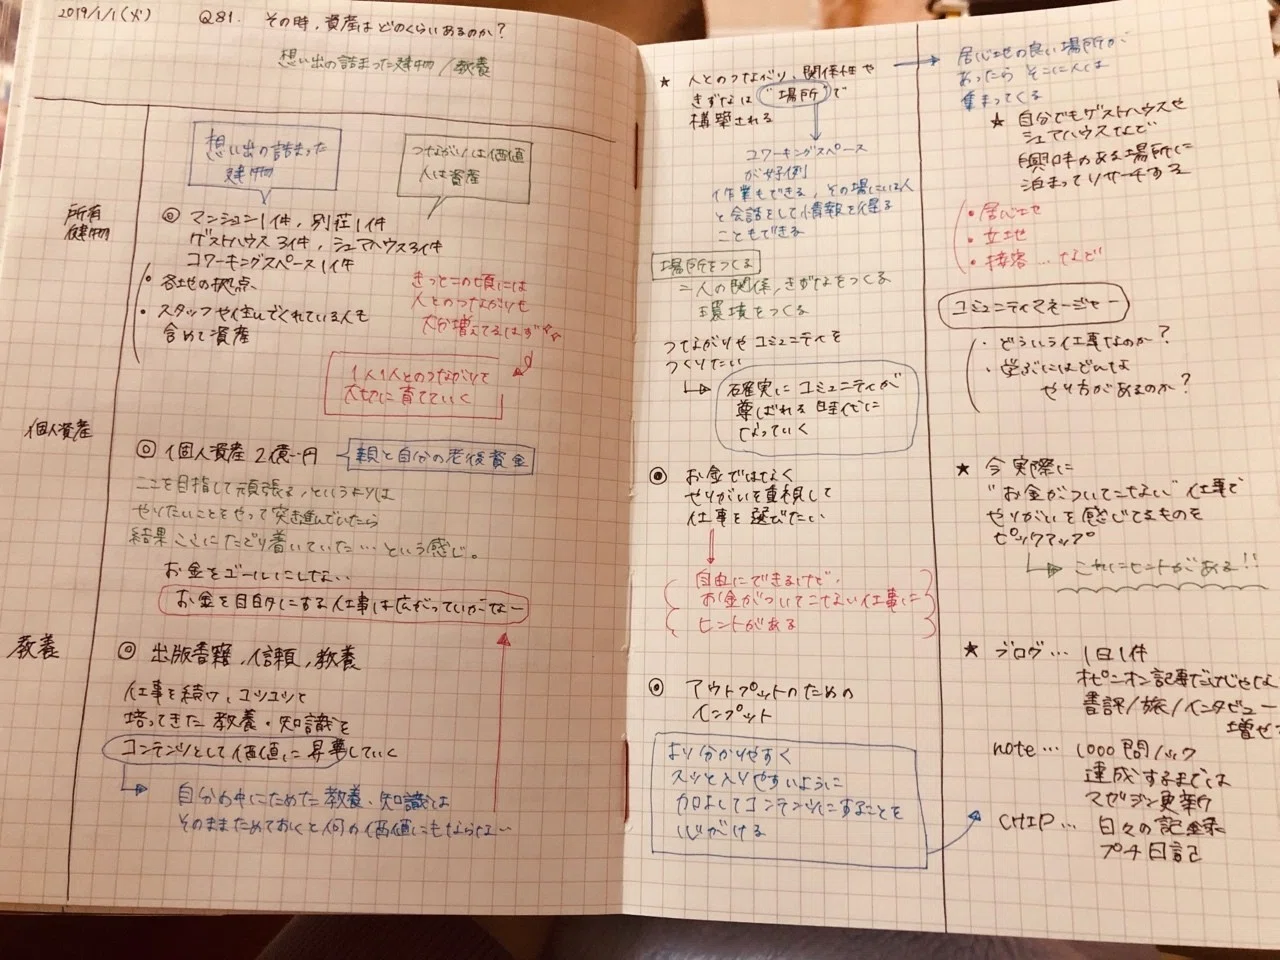 2019/1/1(火) Q81. その時、資産はどのくらいあるのか?
想い出の詰まった建物/教養
想い出の詰まった
建物
つながりは価値
人は資産
所有
建物
◎ マンション1件, 別荘1件
ゲストハウス3件, シェアハウス3件
コワーキングスペース1件
・各地の拠点、
・スタッフや住んでくれている人も
含めて資産
きっとこの頃には
人とのつながりも
大分増えてるはず
1人1人とのつながりを
大切に育てていく
個人資産
◎ 個人資産2億円
親と自分の老後資金
ここを目指して頑張る、というよりは
やりたいことをやって突き進んでいたら
結果ここにたどり着いていた…という感じ。
お金をゴールにしない
お金を目的にする仕事は広がっていかない
教養
◎ 出版書籍, 信頼, 教養
仕事を続け、コツコツと
培ってきた教養・知識を
コンテンツとして価値に昇華していく
自分の中にためた教養・知識は
そのままためておくと何の価値にもならない
★ 人とのつながり、関係性や
きずなは"場所"で
構築される
コワーキングスペース
が好例
作業もできる, その場にいる人
と会話をして情報を得る
こともできる
場所をつくる
=人の関係, きずなをつくる
環境をつくる
つながりやコミュニティを
つくりたい
確実にコミュニティが
尊ばれる時代に
なっていく
◎ お金ではなく
やりがいを重視して
仕事を選びたい
自由にできるけど、
お金がついてこない仕事に
ヒントがある
◎ アウトプットのための
インプット
より分かりやすく
スッと入りやすいように
加工してコンテンツにすることを
心がける
居心地の良い場所が
あったらそこに人は
集まってくる
★ 自分でもゲストハウスや
シェアハウスなどで
興味のある場所に
泊まってリサーチする
・居心地
・立地
・接客…など
コミュニティマネージャー
・どういう仕事なのか?
・学ぶにはどんな
やり方があるのか?
★ 今実際に
"お金がついてこない"仕事で
やりがいを感じてるものを
ピックアップ
これにヒントがある!!
★ ブログ… 1日1件
オピニオン記事だけじゃなく
書評/旅/インタビュー
増やす
note… 1000問ノック
達成するまでは
マガジン更新
CHIP… 日々の記録
プチ日記